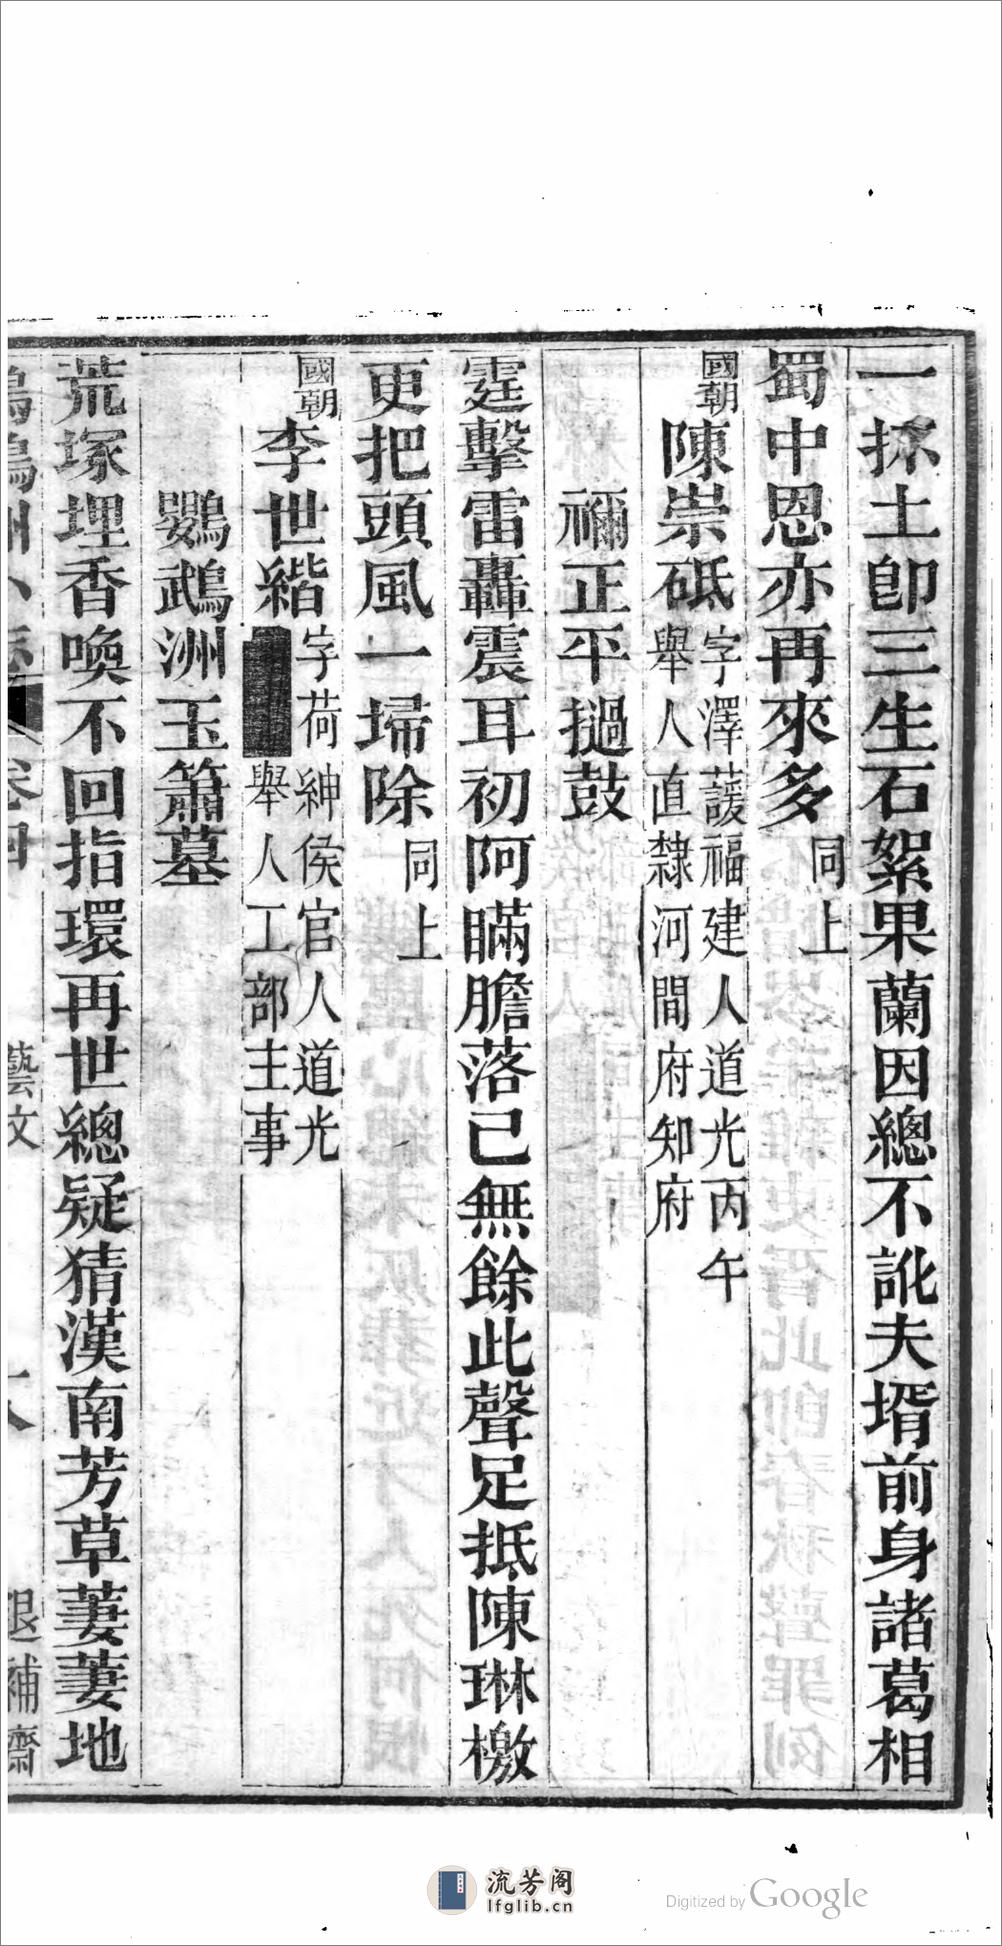 一抔土卽三生石絮果蘭因總不訛夫壻前身諸葛相
蜀中恩亦再來多同上
國朝陳崇砥字澤蘐福建人道光丙午
舉人直隸河間府知府
禰正平撾鼓
霆擊雷轟震耳初阿瞞膽落已無餘此聲足抵陳琳檄
更把頭風一埽除同上
國朝李世緒字荷紳侯官人道光
舉人工部主事
鸚鵡洲玉簫墓
荒塚埋香喚不回指環再世總疑猜漢南芳草萋萋地
鸚鵡洲小志
卷四
藝文
十八
退補齋
流芳阁
lfglib.cn
Digitized by Google